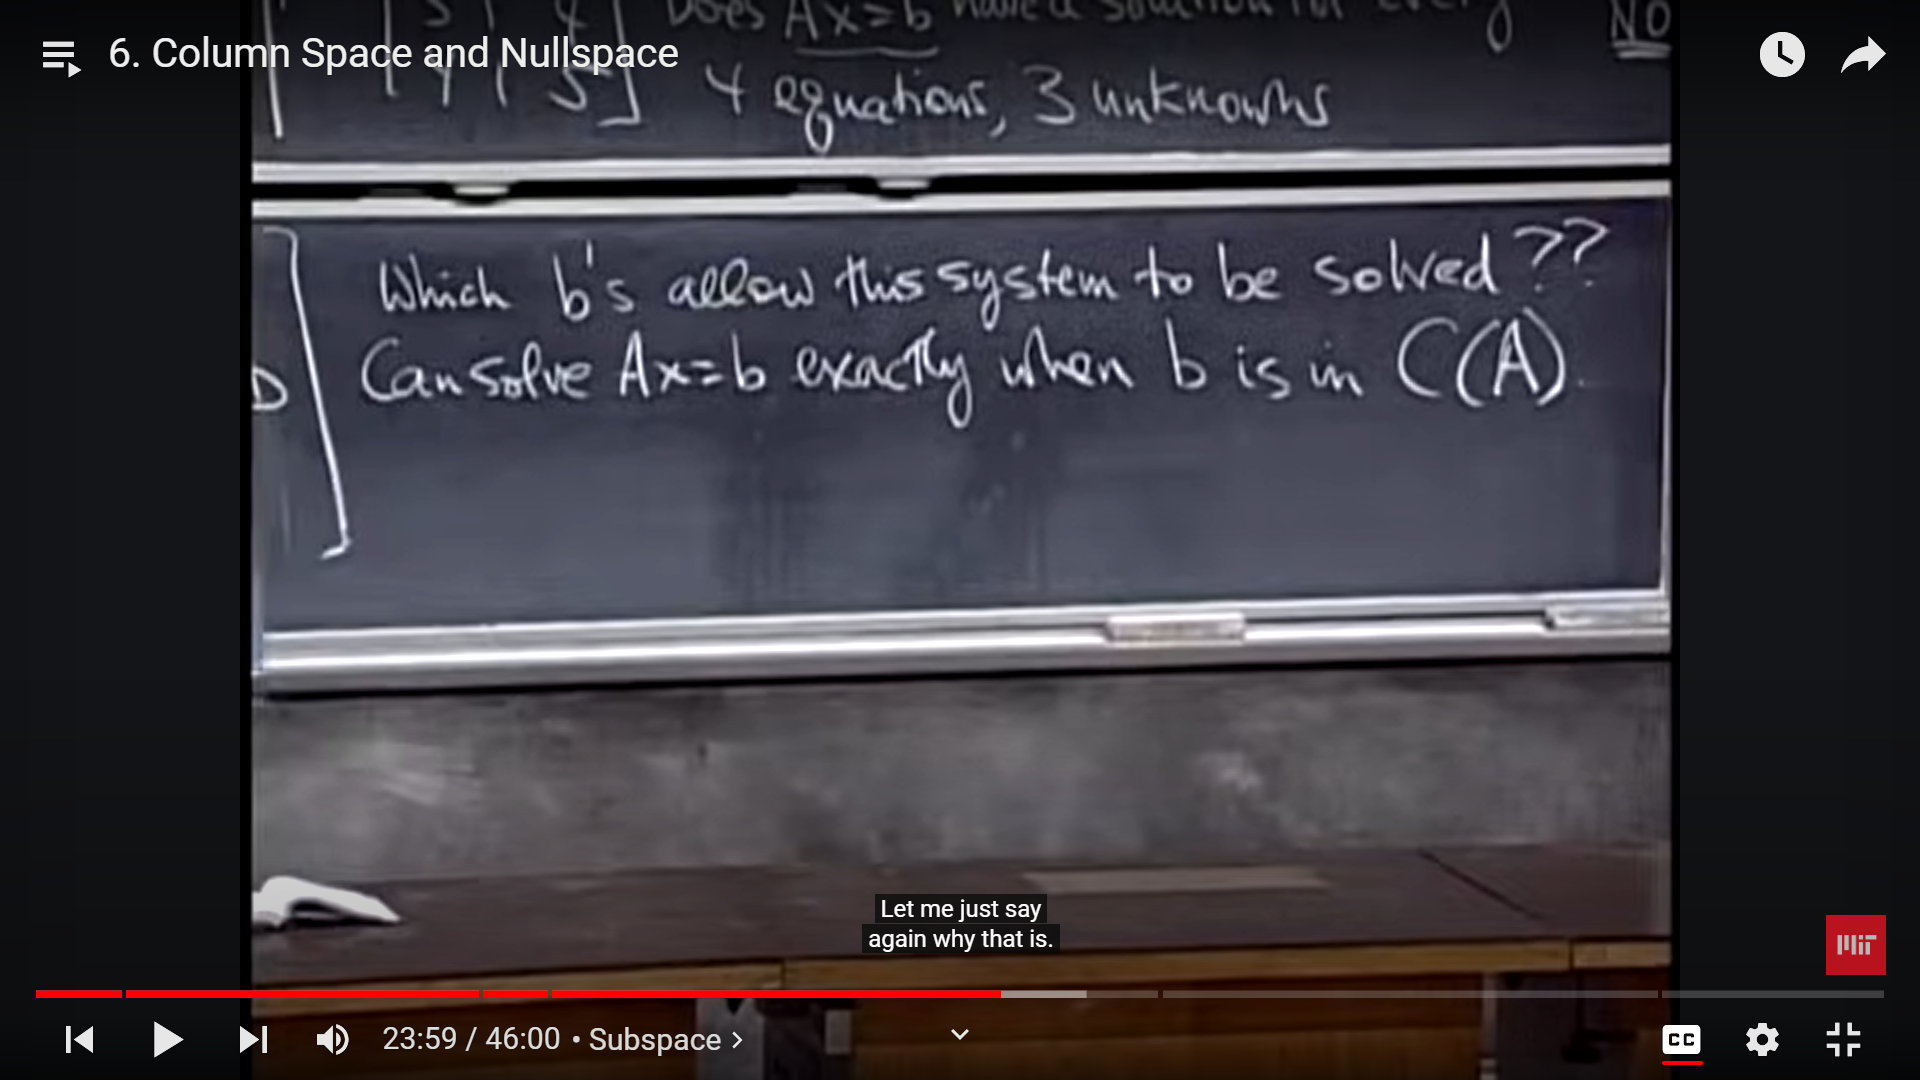 6. Column Space and Nullspace
3 1 4 Does Ax=b have a solution for every NO
4 1 5 4 equations, 3 unknowns
Which b's allow this system to be solved??
Can solve Ax=b exactly when b is in C(A).
Let me just say
again why that is.
MIT
23:59 / 46:00 • Subspace >
CC